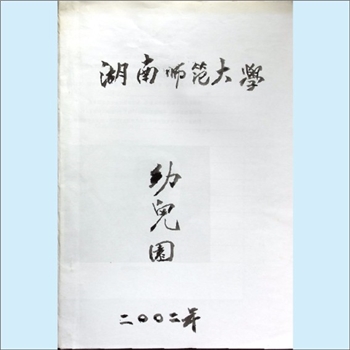 湖南师范大學
幼兒園
二〇〇二年